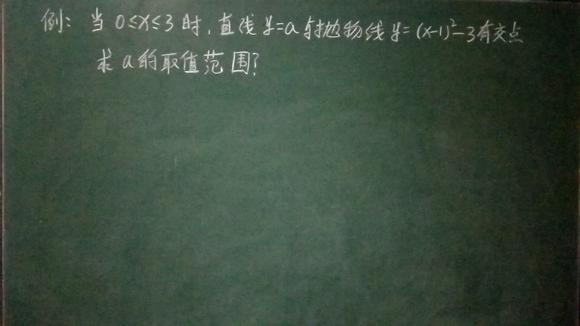 例：当 0≤x≤3 时，直线 y=a 与抛物线 y=(x-1)²-3有交点
求 a 的取值范围？